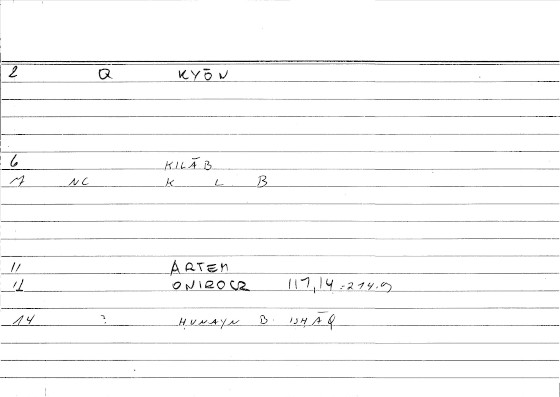 2 Q KYŌN
6 KILĀB
7 NC K L B
11 ARTEM
12 ONIROCR 117,14 = 214.9
14 ? HUNAYN B. ISḤĀQ